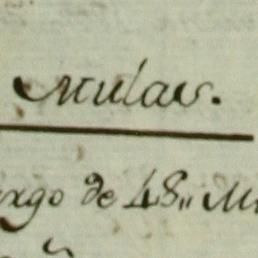 Mulas.
argo de 48,, Mu